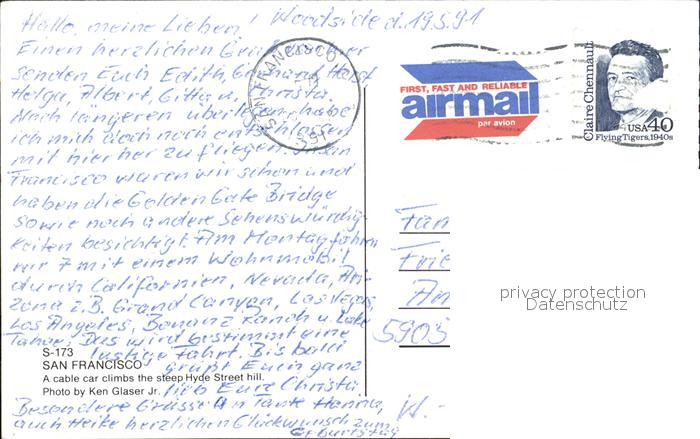 Hallo, meine Lieben! Woodside d. 19.5.91
Einen herzlichen Gruß hier
senden Euch Edith, Gerhard, Horst
Helga, Albert, Gitta u. Christa.
Nach längeren überlegen habe
ich mich doch noch entschlossen
mit hierher zu fliegen. In San
Francisco waren wir schon und
haben die Golden Gate Bridge
sowie noch andere Sehenswürdig-
keiten besichtigt. Am Montag fahren
wir 7 mit einem Wohnmobil
durch Californien, Nevada, Ari-
zona z.B. Grand Canyan, Las Vegas,
Los Angeles, Bonanz Ranch u. Lake
Tahoe. Das wird bestimmt eine
lustige Fahrt. Bis bald
grüßt Euch ganz
lieb Eure Christa
Besondere Grüsse an Tante Hanna,
auch Heike herzlichen Glückwunsch zum
Geburtstag
S-173
SAN FRANCISCO
A cable car climbs the steep Hyde Street hill.
Photo by Ken Glaser Jr.
SAN FRANCISCO
FIRST, FAST AND RELIABLE
airmail
par avion
Claire Chennault
USA 40
Flying Tigers, 1940s
Fam
Frie
Am
5905
W.-
privacy protection
Datenschutz